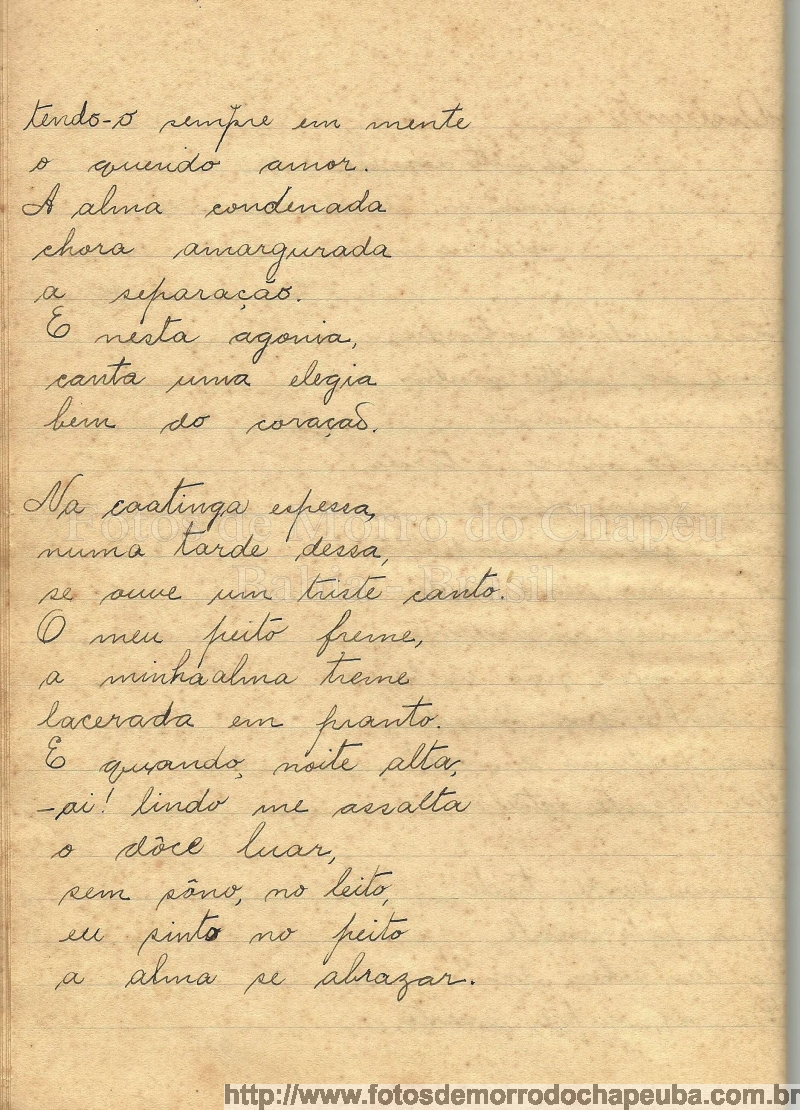 tendo-o sempre em mente
o querido amor.
A alma condenada
chora amargurada
a separação.
E nesta agonia,
canta uma elegia
bem do coração.
Na caatinga espessa,
numa tarde dessa,
se ouve um triste canto.
O meu peito freme,
a minha alma treme
lacerada em pranto.
E quando, noite alta,
-ai! lindo me assalta
o dôce luar,
sem sôno, no leito,
eu sinto no peito
a alma se abrazar.
Fotos de Morro do Chapéu
Bahia - Brasil
http://www.fotosdemorrodochapeuba.com.br